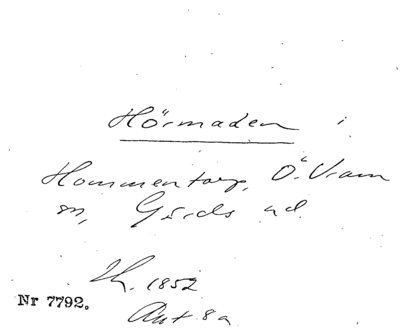 Hörmaden
Hommentorp, Ö. Vram
sn, Gärds hd.
Th. 1852
Nr 7792.
Ant 8a